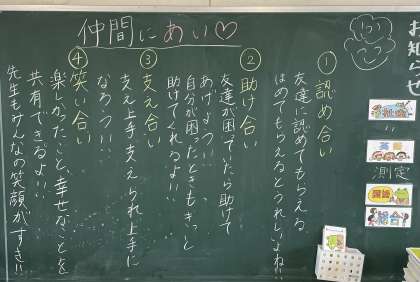 仲間にあい♡
お知らせ
①認め合い
友達に認めてもらえる、
ほめてもらえるとうれしいよね!!
②助け合い
友達が困っていたら助けて
あげよう!!
自分が困ったときもきっと
助けてくれるよ!!
③支え合い
支え上手、支えられ上手に
なろう!!
④笑い合い
楽しかったこと、幸せなことを
共有できるよ!!
先生もみんなの笑顔がすき!!
測定
総合